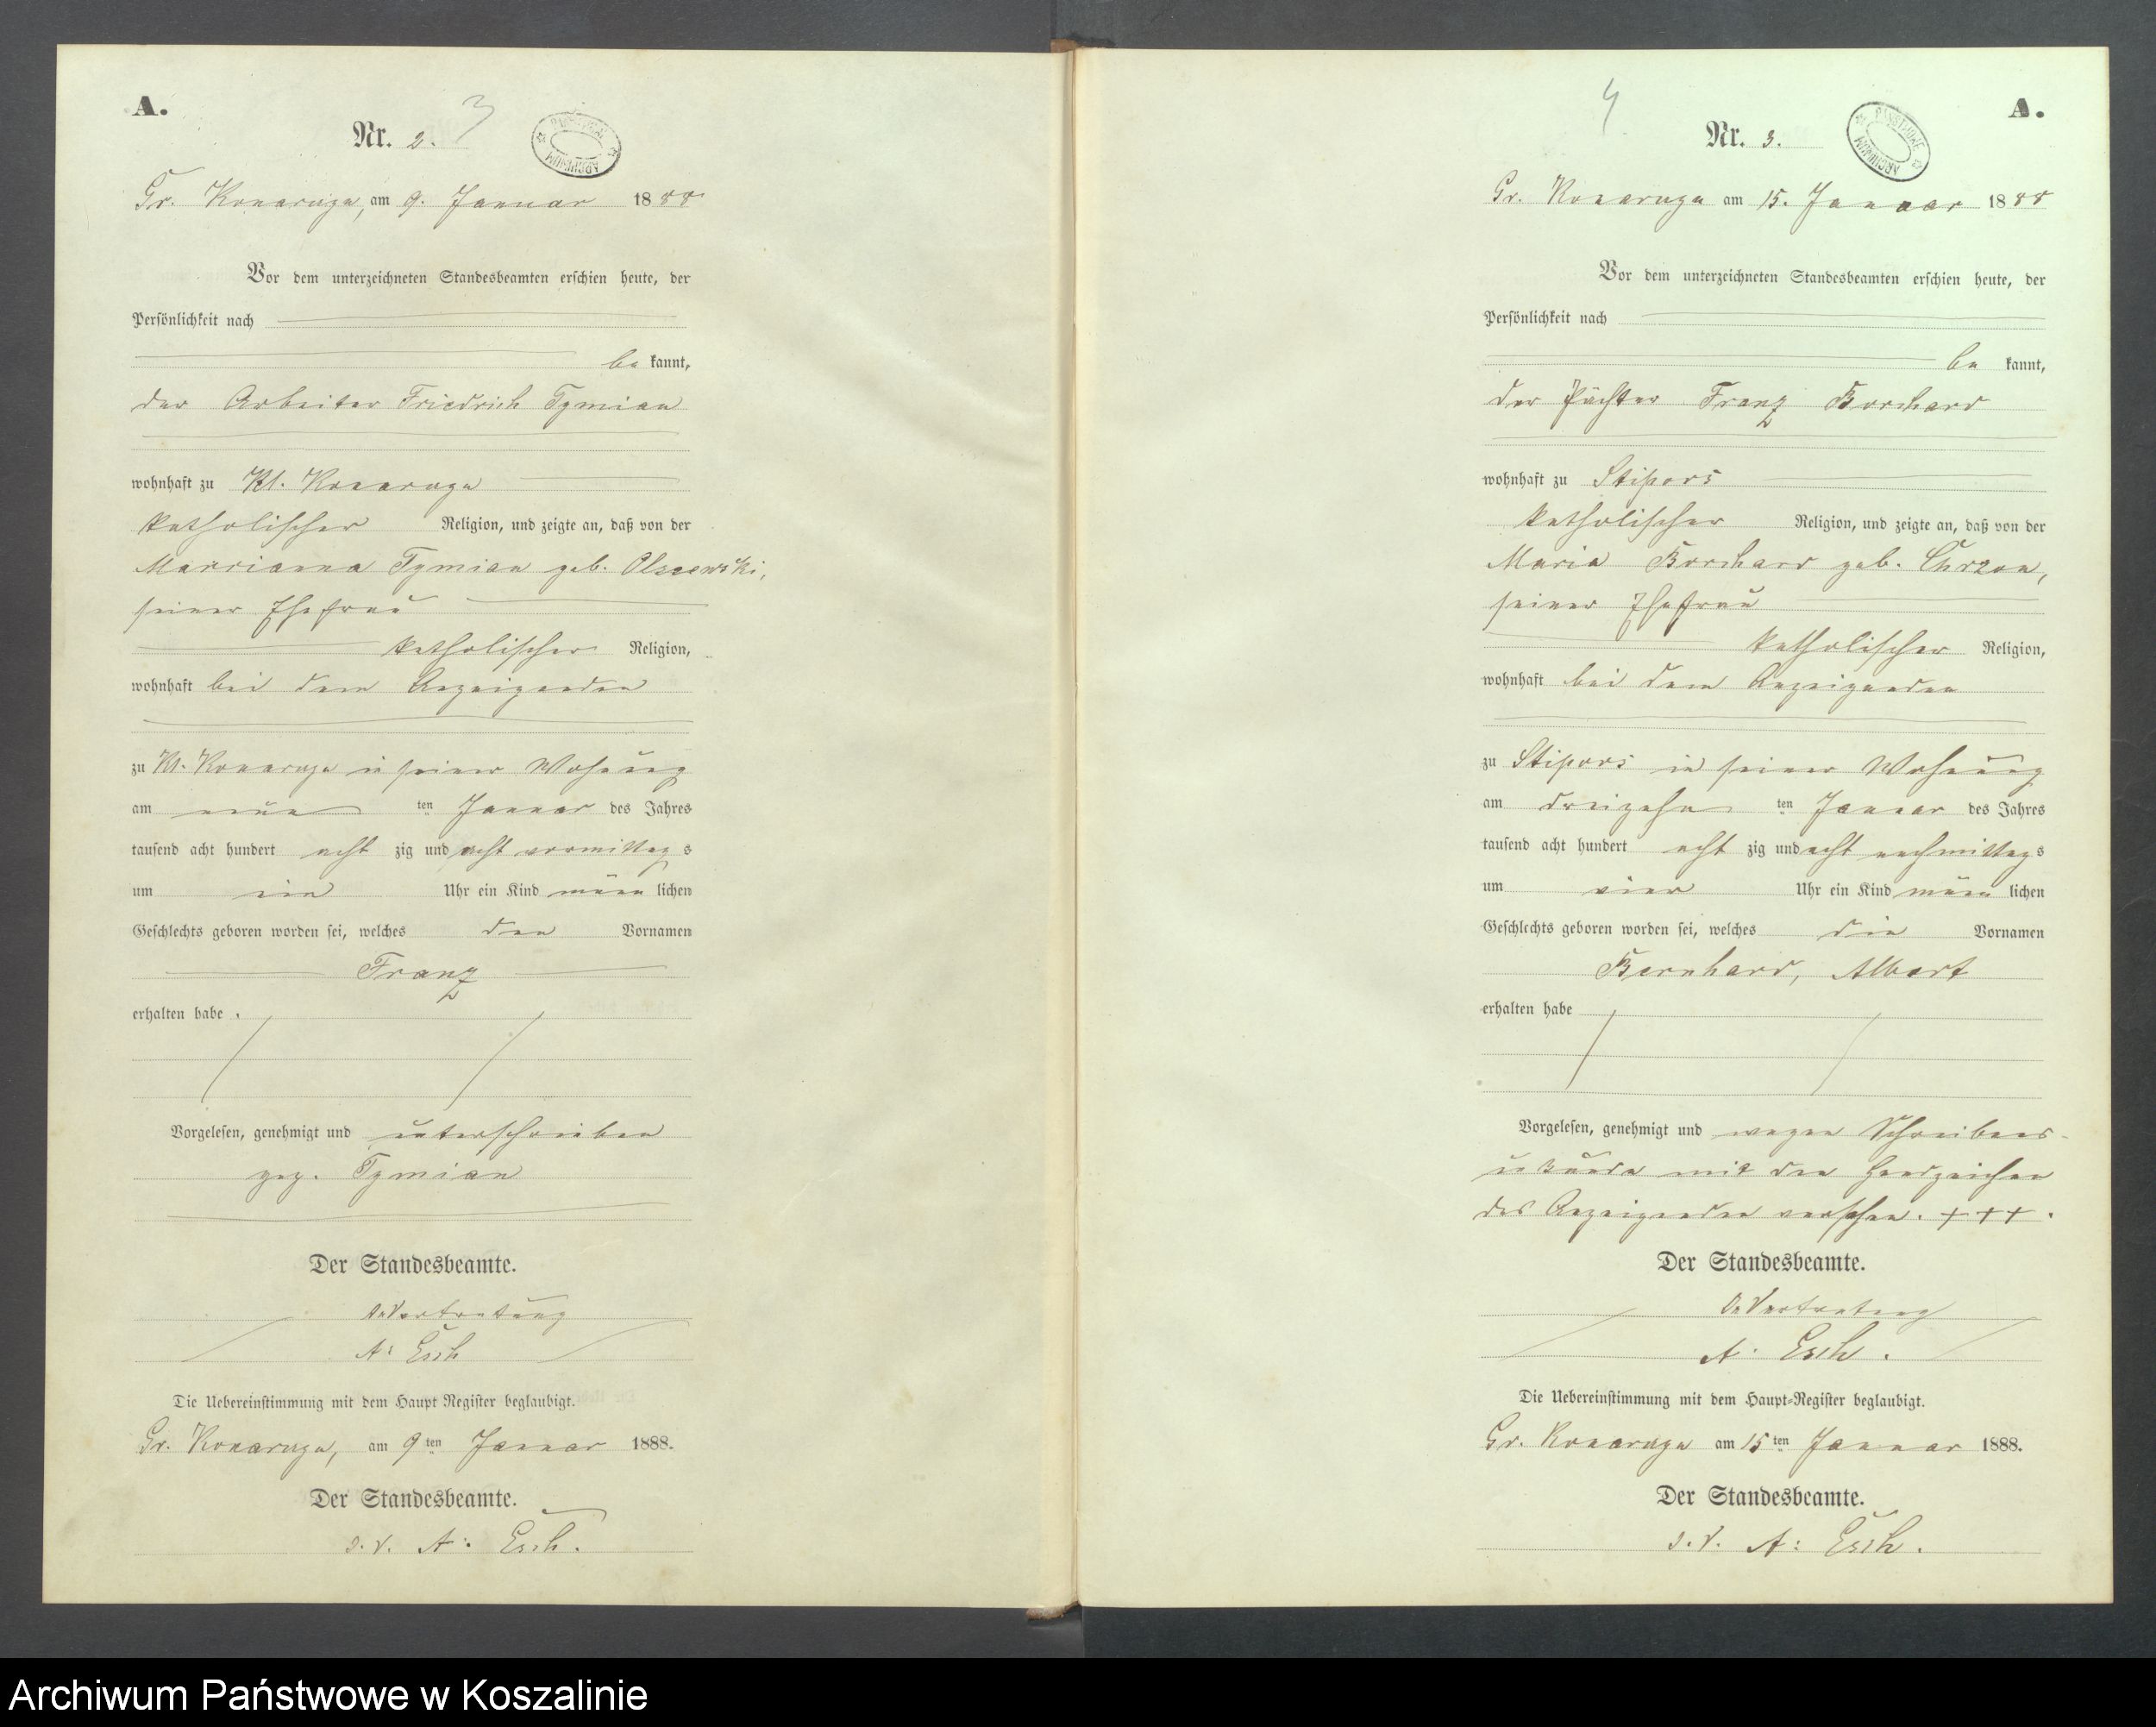 A.
Nr. 2. 3
Gr. Konarzyn, am 9. Januar 1888
Vor dem unterzeichneten Standesbeamten erschien heute, der
Persönlichkeit nach
be kannt,
der Arbeiter Friedrich Tymian
wohnhaft zu Kl. Konarzyn
katholischer Religion, und zeigte an, daß von der
Marrianna Tymian geb. Olszewski,
seiner Ehefrau
katholischer Religion,
wohnhaft bei dem Anzeigenden
zu Kl. Konarzyn in seiner Wohnung
am neun ten Januar des Jahres
tausend acht hundert acht zig und acht vormittag s
um ein Uhr ein Kind männ lichen
Geschlechts geboren worden sei, welches den Vornamen
Franz
erhalten habe.
Vorgelesen, genehmigt und unterschrieben
gez. Tymian
Der Standesbeamte.
In Vertretung
A: Esch
Die Uebereinstimmung mit dem Haupt Register beglaubigt.
Gr. Konarzyn, am 9 ten Januar 1888.
Der Standesbeamte.
I. V. A: Esch.
4 A.
Nr. 3.
Gr. Konarzyn am 15. Januar 1888
Vor dem unterzeichneten Standesbeamten erschien heute, der
Persönlichkeit nach
be kannt,
der Pächter Franz Borchard
wohnhaft zu Stibors
katholischer Religion, und zeigte an, daß von der
Maria Borchard geb. Chrzon,
seiner Ehefrau
katholischer Religion,
wohnhaft bei dem Anzeigenden
zu Stibors in seiner Wohnung
am dreizehn ten Januar des Jahres
tausend acht hundert acht zig und acht nachmittag s
um vier Uhr ein Kind männ lichen
Geschlechts geboren worden sei, welches die Vornamen
Bernhard, Albert
erhalten habe
Vorgelesen, genehmigt und wegen Schreibens-
unkunde mit den Handzeichen
des Anzeigenden versehen. +++.
Der Standesbeamte.
In Vertretung
A: Esch.
Die Uebereinstimmung mit dem Haupt-Register beglaubigt.
Gr. Konarzyn am 15 ten Januar 1888.
Der Standesbeamte.
I. V. A: Esch.
Archiwum Państwowe w Koszalinie